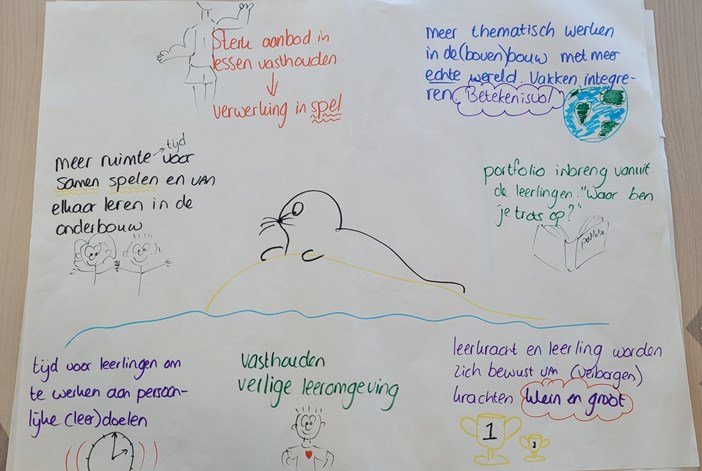 Sterk aanbod in
lessen vasthouden
↓
verwerking in spel
meer thematisch werken
in de (boven)bouw met meer
echte wereld. Vakken integre-
ren. Betekenisvol
meer ruimte → tijd voor
samen spelen en van
elkaar leren in de
onderbouw
portfolio inbreng vanuit
de leerlingen. "Waar ben
je trots op?"
portfolio
tijd voor leerlingen om
te werken aan persoon-
lijke (leer)doelen
vasthouden
veilige leeromgeving
leerkracht en leerling worden
zich bewust van (verborgen)
krachten klein en groot
1